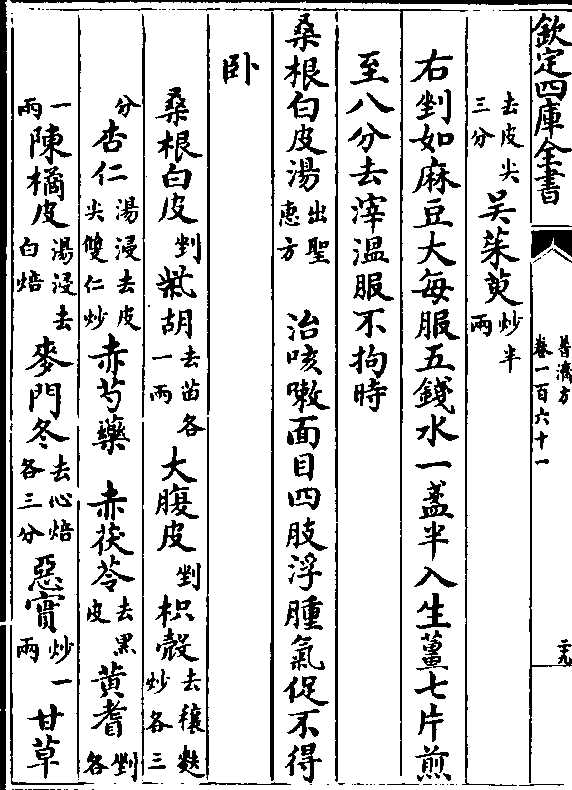 欽定四庫全書
普濟方
卷一百六十一
二九
去皮尖三分吴茱萸炒半兩
右剉如麻豆大每服五錢水一盞半入生薑七片煎
至八分去滓温服不拘時
桑根白皮湯出聖惠方 治咳嗽面目四肢浮腫氣促不得
卧
桑根白皮剉柴胡去苗各一兩大腹皮剉枳殻去穰麩炒各三
分杏仁湯浸去皮尖雙仁炒赤芍藥 赤茯苓去黑皮黄耆剉各
一兩陳橘皮湯浸去白焙麥門冬去心焙各三分惡實炒一兩甘草